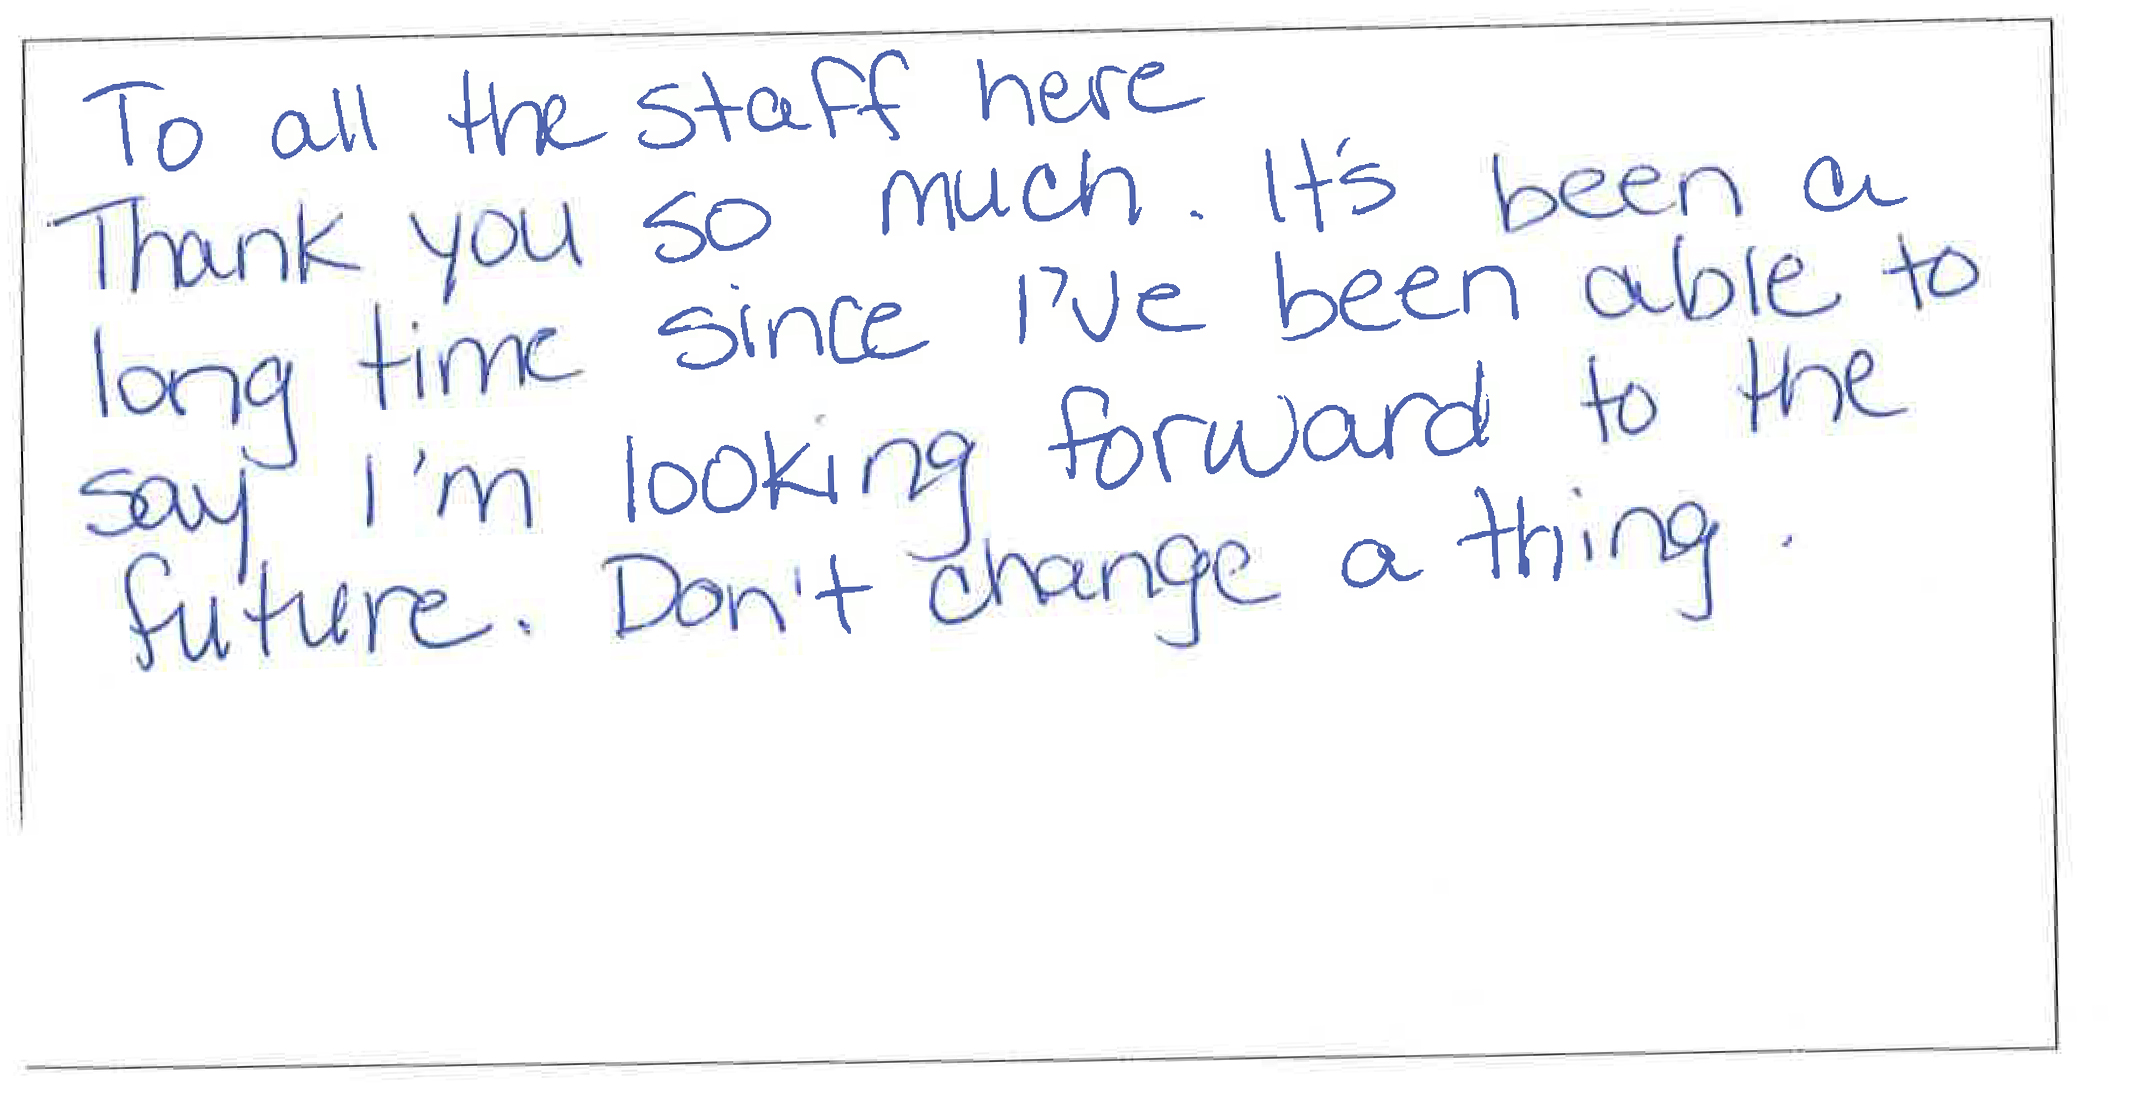 To all the staff here
Thank you so much. It's been a
long time since I've been able to
say I'm looking forward to the
future. Don't change a thing.